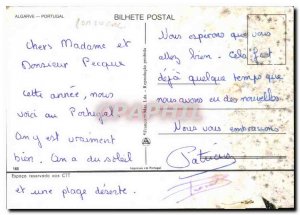 ALGARVE - PORTUGAL
BILHETE POSTAL
Chers Madame et
Monsieur Pecqua
Cette année, nous
voici au Portugal
On y est vraiment
bien. On a du soleil
et une plage déserte.
Nous esperons que vous
allez bien. Cela fait
déjà quelque temps que
nous avons eu des nouvelles
Nous vous embrassons
Patricia
188
Espaço reservado aos CTT
Reprodução proibida
Impresso em Portugal